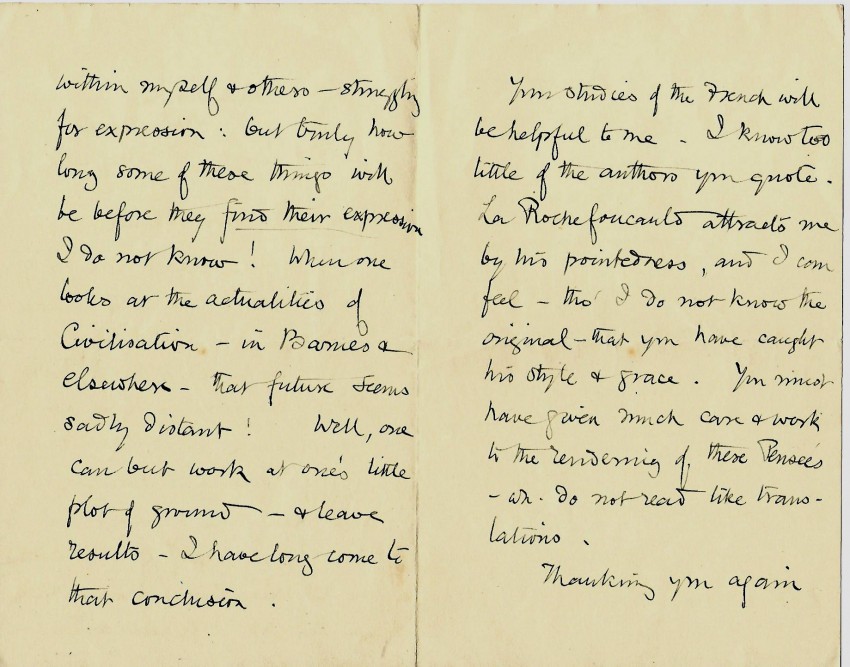 within myself & others – struggling
for expression : but truly how
long some of these things will
be before they find their expression
I do not know ! When one
looks at the actualities of
Civilisation – in Barnes &
elsewhere – that future seems
sadly distant ! Well, one
can but work at one's little
plot of ground – & leave
results – I have long come to
that conclusion .
Your studies of the French will
be helpful to me . I know too
little of the authors you quote .
La Rochefoucauld attracts me
by his pointedness , and I can
feel – tho' I do not know the
original – that you have caught
his style & grace . You must
have given much care & work
to the rendering of these Pensées
– wh. do not read like trans-
lations .
Thanking you again